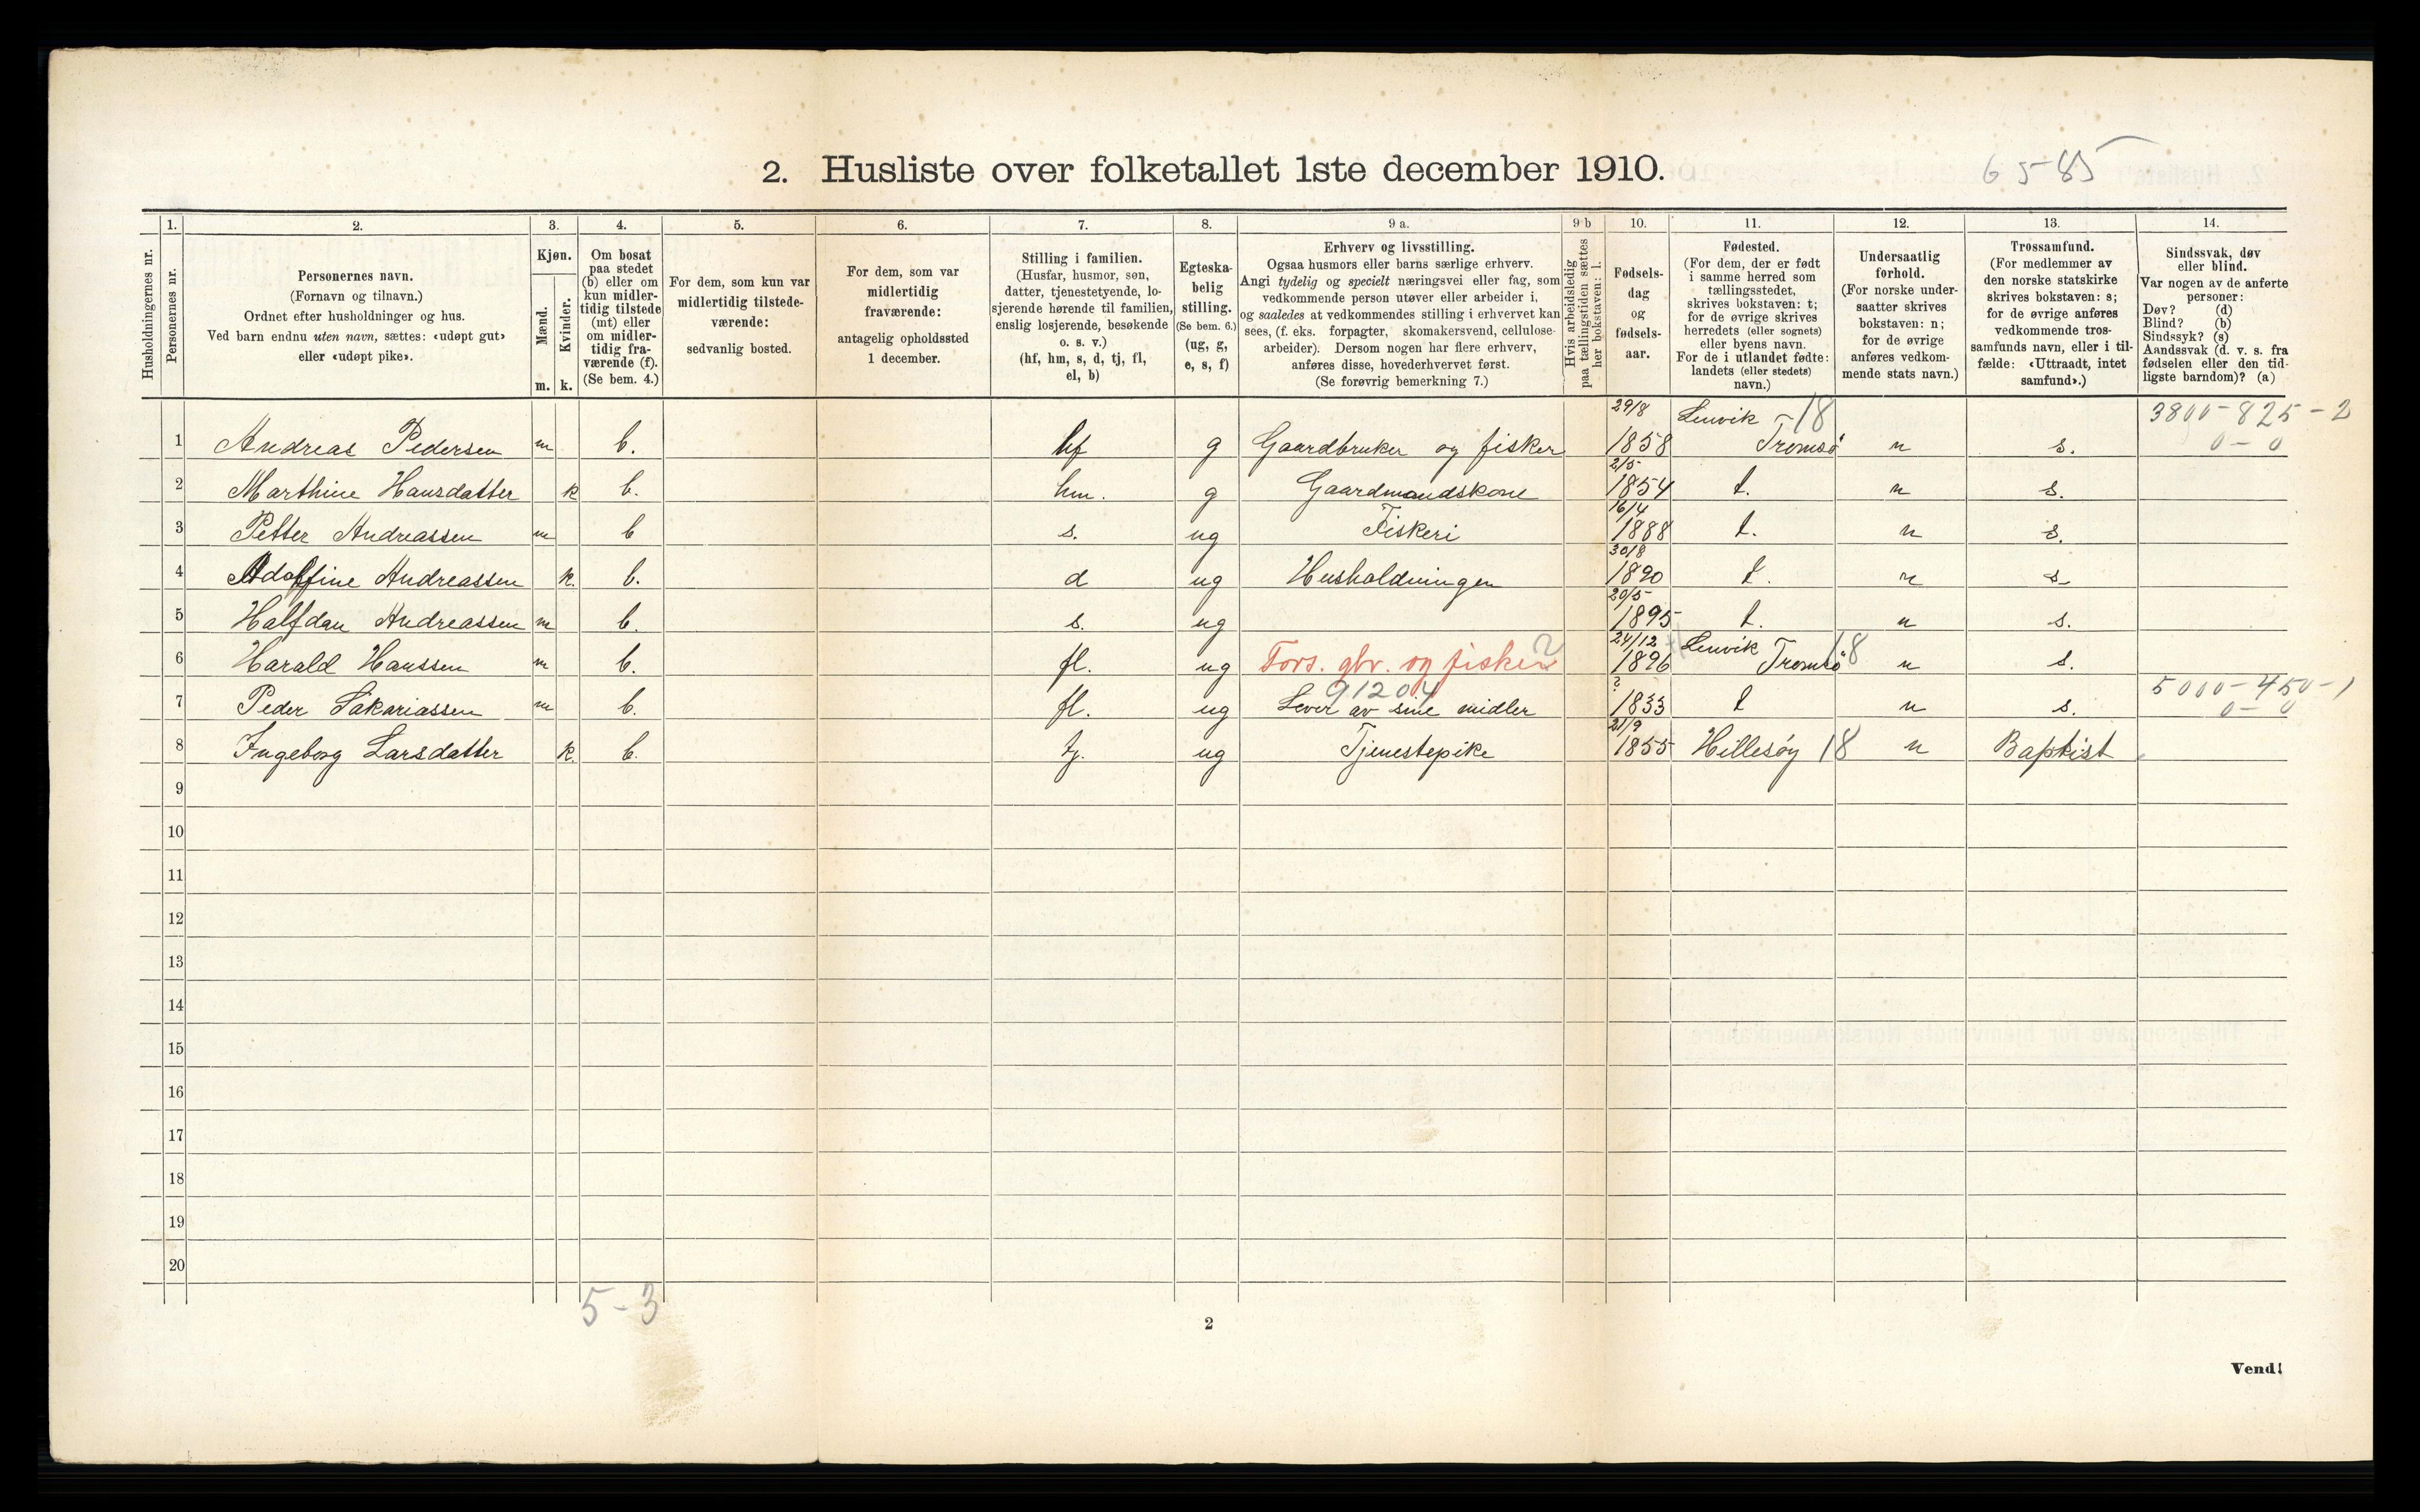 2. Husliste over folketallet 1ste december 1910.
65-85
1. 2. 3. 4. 5. 6. 7. 8. 9 a. 9 b 10. 11. 12. 13. 14.
Husholdningernes nr.
Personernes nr.
Personernes navn.
(Fornavn og tilnavn.)
Ordnet efter husholdninger og hus.
Ved barn endnu uten navn, sættes: «udøpt gut»
eller «udøpt pike».
Kjøn.
Mænd.
Kvinder.
m. k.
Om bosat
paa stedet
(b) eller om
kun midler-
tidig tilstede
(mt) eller
om midler-
tidig fra-
værende (f).
(Se bem. 4.)
For dem, som kun var
midlertidig tilstede-
værende:
sedvanlig bosted.
For dem, som var
midlertidig
fraværende:
antagelig opholdssted
1 december.
Stilling i familien.
(Husfar, husmor, søn,
datter, tjenestetyende, lo-
sjerende hørende til familien,
enslig losjerende, besøkende
o. s. v.)
(hf, hm, s, d, tj, fl,
el, b)
Egteska-
belig
stilling.
(Se bem. 6.)
(ug, g,
e, s, f)
Erhverv og livsstilling.
Ogsaa husmors eller barns særlige erhverv.
Angi tydelig og specielt næringsvei eller fag, som
vedkommende person utøver eller arbeider i,
og saaledes at vedkommendes stilling i erhvervet kan
sees, (f. eks. forpagter, skomakersvend, cellulose-
arbeider). Dersom nogen har flere erhverv,
anføres disse, hovederhvervet først.
(Se forøvrig bemerkning 7.)
Hvis arbeidsledig
paa tællingstiden sættes
her bokstaven: l.
Fødsels-
dag
og
fødsels-
aar.
Fødested.
(For dem, der er født
i samme herred som
tællingsstedet,
skrives bokstaven: t;
for de øvrige skrives
herredets (eller sognets)
eller byens navn.
For de i utlandet fødte:
landets (eller stedets)
navn.)
Undersaatlig
forhold.
(For norske under-
saatter skrives
bokstaven: n;
for de øvrige
anføres vedkom-
mende stats navn.)
Trossamfund.
(For medlemmer av
den norske statskirke
skrives bokstaven: s;
for de øvrige anføres
vedkommende tros-
samfunds navn, eller i til-
fælde: «Uttraadt, intet
samfund».)
Sindssvak, døv
eller blind.
Var nogen av de anførte
personer:
Døv? (d)
Blind? (b)
Sindssyk? (s)
Aandssvak (d. v. s. fra
fødselen eller den tid-
ligste barndom)? (a)
29/8 Lenvik - 18 3800-825-2
1 Andreas Pedersen m b. hf g Gaardbruker og fisker 1858 Tromsø n s. 0-0
2/5
2 Marthine Hansdatter k b. hm. g Gaardmandskone 1854 t. n s.
16/4
3 Petter Andreassen m b s. ug Fiskeri 1888 t. n s.
30/8
4 Adolfine Andreassen k. b. d ug Husholdningen 1890 t. n s
20/5
5 Halfdan Andreassen m b. s. ug 1895 t. n s.
24/12 Lenvik 18
6 Harald Hanssen m b. fl. ug Fors. gbr. og fisker 2 1896 Tromsø n s.
? 91204 5000-450-1
7 Peder Sakariassen m b. fl. ug Lever av sine midler 1833 t n s. 0-0
21/9
8 Ingeborg Larsdatter k. b. tj. ug Tjenestepike 1855 Hillesøy 18 n Baptist
9
10
11
12
13
14
15
16
17
18
19
20
5-3
2
Vend!